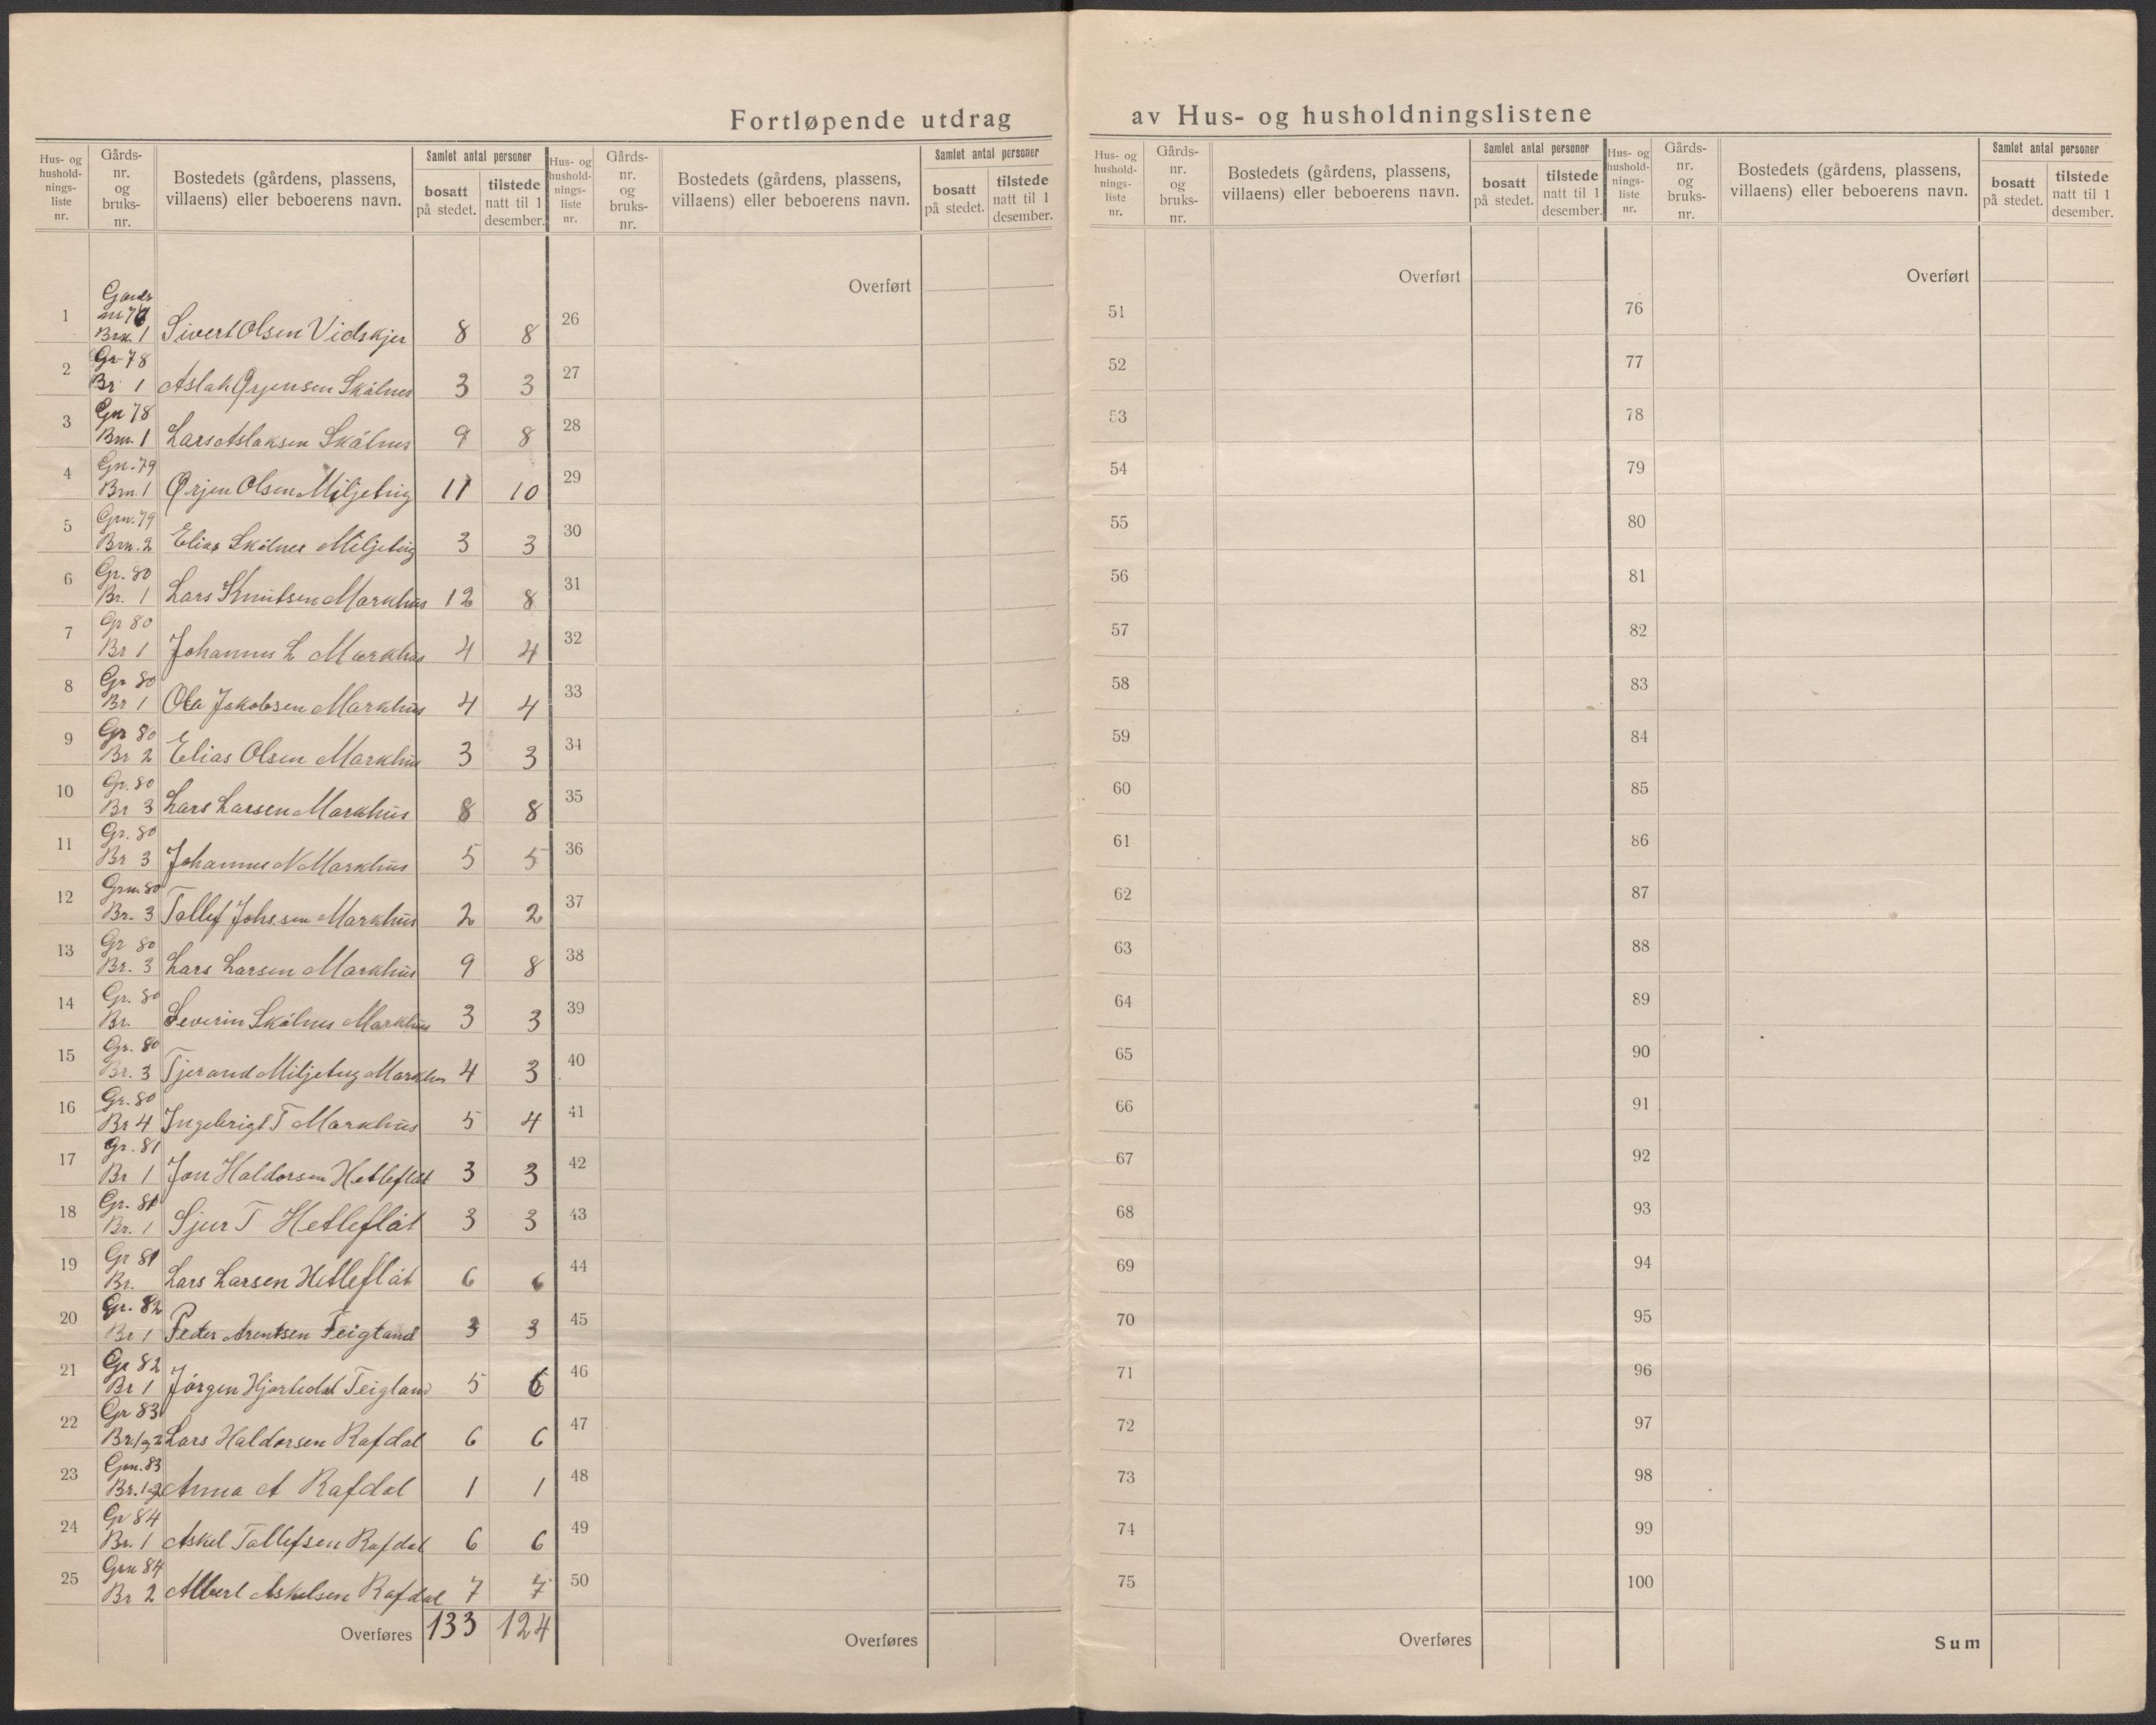 Fortløpende utdrag av Hus- og husholdningslistene
Hus- og hushold-nings-liste nr. Gårds-nr. og bruks-nr. Bostedets (gårdens, plassens, villaens) eller beboerens navn. Samlet antal personer bosatt på stedet. tilstede natt til 1 desember.
Hus- og hushold-nings-liste nr. Gårds-nr. og bruks-nr. Bostedets (gårdens, plassens, villaens) eller beboerens navn. Samlet antal personer bosatt på stedet. tilstede natt til 1 desember.
Hus- og hushold-nings-liste nr. Gårds-nr. og bruks-nr. Bostedets (gårdens, plassens, villaens) eller beboerens navn. Samlet antal personer bosatt på stedet. tilstede natt til 1 desember.
Hus- og hushold-nings-liste nr. Gårds-nr. og bruks-nr. Bostedets (gårdens, plassens, villaens) eller beboerens navn. Samlet antal personer bosatt på stedet. tilstede natt til 1 desember.
1 Gards nr 77 Brn. 1 Sivert Olsen Vidskjer 8 8
2 Gr 78 Br 1 Aslak Ørjensen Skålnes 3 3
3 Gn 78 Brn. 1 Lars Aslaksen Skålnes 9 8
4 Gn. 79 Brn. 1 Ørjen Olsen Miljeteig 11 10
5 Grn. 79 Brn. 2 Elias Skålnes Miljeteig 3 3
6 Gr. 80 Br. 1 Lars Knutsen Markhus 12 8
7 Gr 80 Br 1 Johannes L Markhus 4 4
8 Gr 80 Br 1 Ola Jakobsen Markhus 4 4
9 Gr 80 Br 2 Elias Olsen Markhus 3 3
10 Gr. 80 Br 3 Lars Larsen Markhus 8 8
11 Gr. 80 Br 3 Johannes N Markhus 5 5
12 Grn. 80 Br. 3 Tollef Johssen Markhus 2 2
13 Gr 80 Br. 3 Lars Larsen Markhus 9 8
14 Gr. 80 Br. Severin Skålnes Markhus 3 3
15 Gr. 80 Br. 3 Tjerand Miljeteig Markhus 4 3
16 Gr. 80 Br 4 Ingebrigt T Markhus 5 4
17 Gr. 81 Br 1 Jon Haldorsen Hetleflåt 3 3
18 Gr. 81 Br. 1 Sjur T Hetleflåt 3 3
19 Gr 81 Br. Lars Larsen Hetleflåt 6 6
20 Gr. 82 Br 1 Peder Arentsen Teigland 3 3
21 Gr 82 Br 1 Jørgen Hjortedal Teigland 5 6
22 Gr 83 Br. 1 og 2 Lars Haldorsen Rafdal 6 6
23 Grn. 83 Br. 1 Anna A Rafdal 1 1
24 Gr 84 Br. 1 Askel Tollefsen Rafdal 6 6
25 Grn 84 Br 2 Albert Askelsen Rafdal 7 7
Overføres 133 124
Overført
26
27
28
29
30
31
32
33
34
35
36
37
38
39
40
41
42
43
44
45
46
47
48
49
50
Overføres
Overført
51
52
53
54
55
56
57
58
59
60
61
62
63
64
65
66
67
68
69
70
71
72
73
74
75
Overføres
Overført
76
77
78
79
80
81
82
83
84
85
86
87
88
89
90
91
92
93
94
95
96
97
98
99
100
Sum